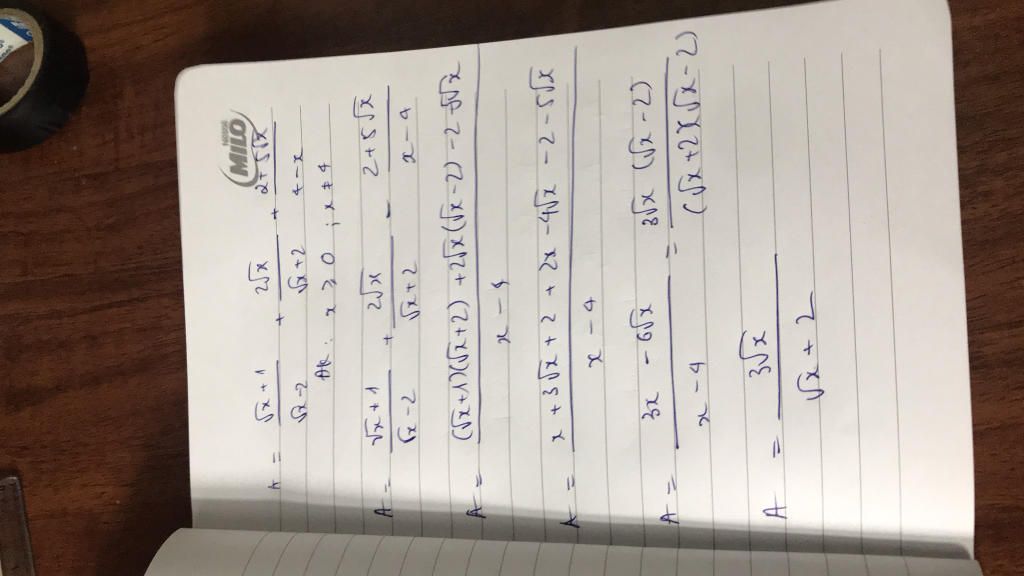 NESTLÉ
MILO
A = (√x + 1)/(√x - 2) + 2√x/(√x + 2) + (2 + 5√x)/(4 - x)
ĐK : x ≥ 0 ; x ≠ 4
A = (√x + 1)/(√x - 2) + 2√x/(√x + 2) - (2 + 5√x)/(x - 4)
A = ((√x + 1)(√x + 2) + 2√x(√x - 2) - 2 - 5√x)/(x - 4)
A = (x + 3√x + 2 + 2x - 4√x - 2 - 5√x)/(x - 4)
A = (3x - 6√x)/(x - 4) = (3√x (√x - 2))/((√x + 2)(√x - 2))
A = 3√x/(√x + 2)